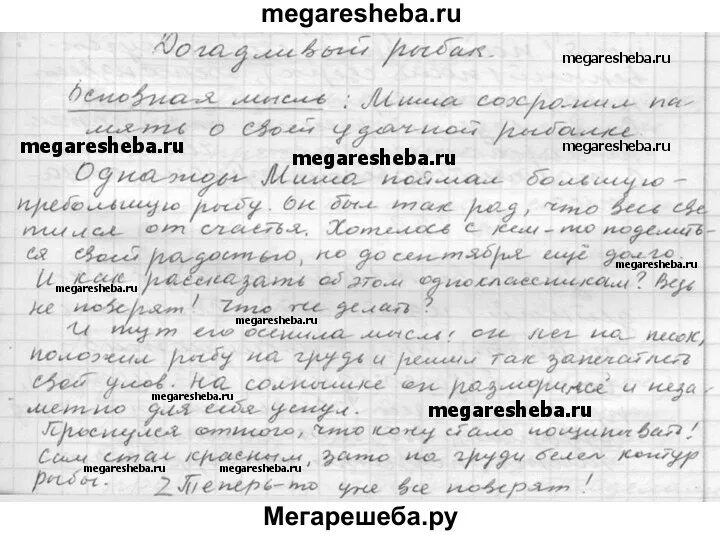 megaresheba.ru
Догадливый рыбак.
megaresheba.ru
Основная мысль: Миша сохранил па-
мять о своей удачной рыбалке.
megaresheba.ru
megaresheba.ru
megaresheba.ru
Однажды Миша поймал большую-
пребольшую рыбу. Он был так рад, что весь све-
тился от счастья. Хотелось с кем-то поделить-
ся своей радостью, но до сентября ещё долго.
megaresheba.ru
И как рассказать об этом одноклассникам? Ведь
megaresheba.ru
не поверят! Что же делать?
megaresheba.ru
И тут его осенила мысль: он лег на песок,
положил рыбу на грудь и решил так запечатлеть
свой улов. На солнышке он разморился и неза-
метно для себя уснул.
megaresheba.ru
Проснулся оттого, что кожу стало пощипывать!
Сам стал красным, зато на груди белел контур
megaresheba.ru
megaresheba.ru
рыбы.
Теперь-то уже все поверят!
Мегарешеба.ру